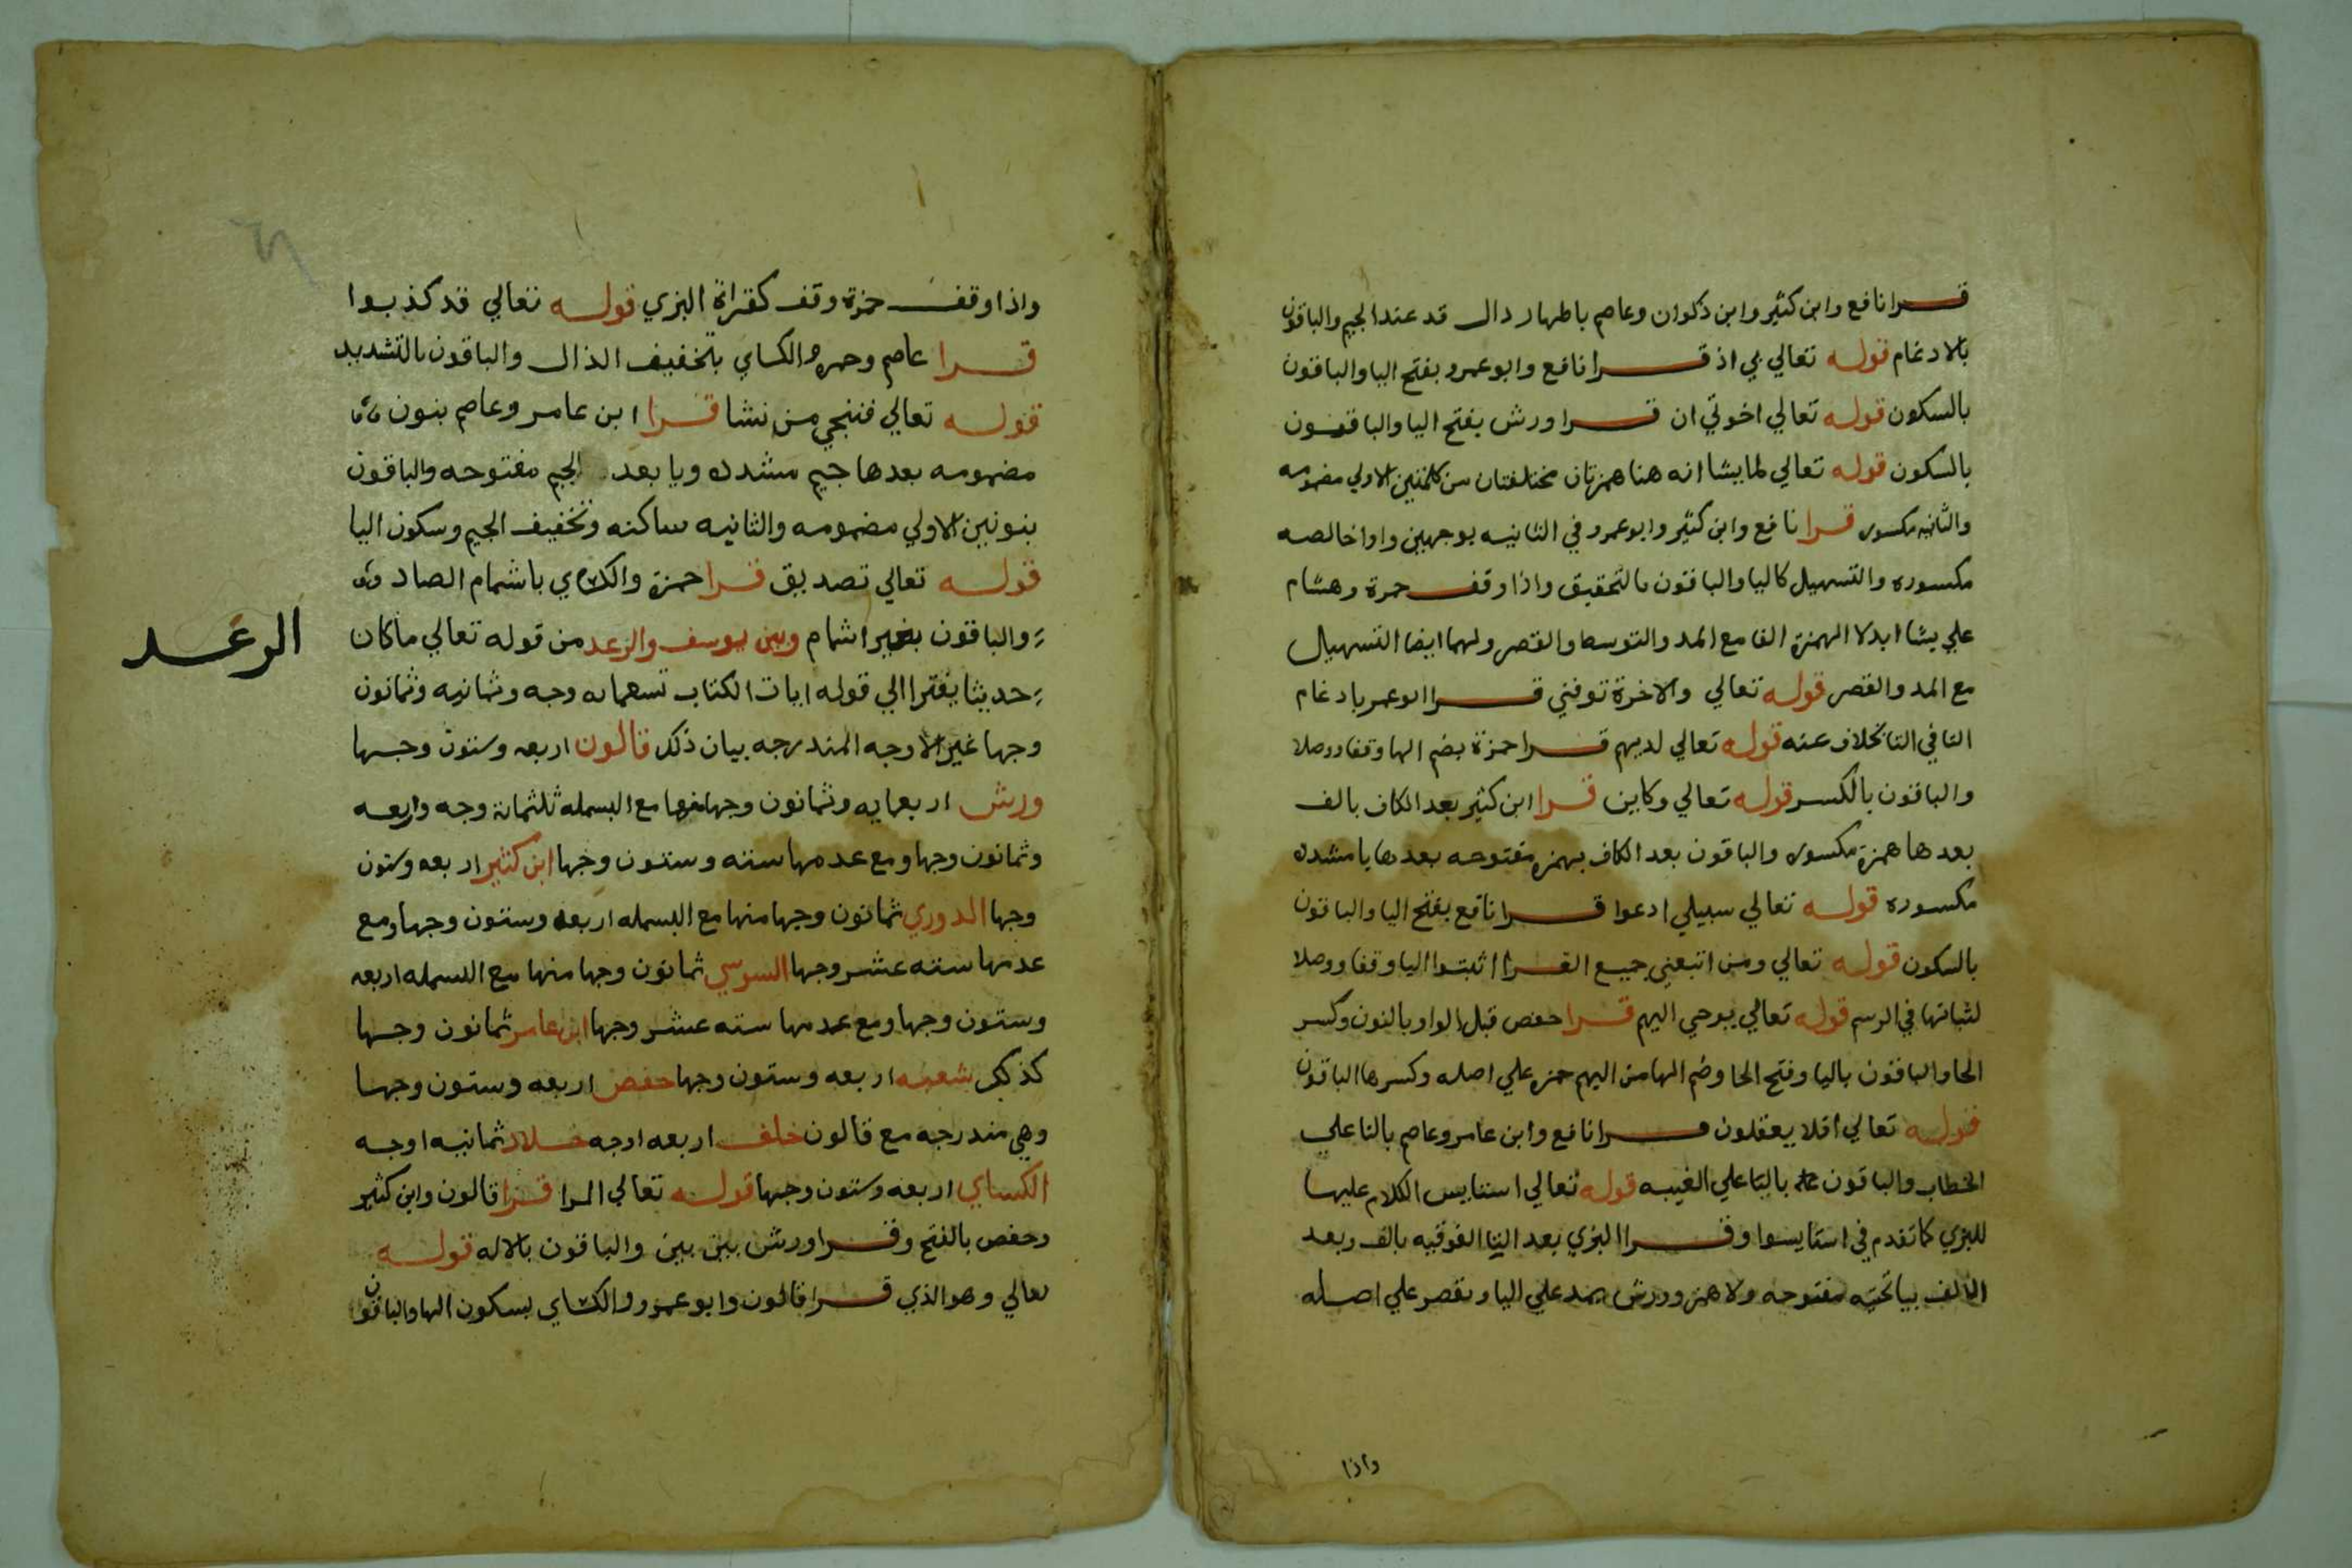 قرا نافع وابن كثير وابن ذكوان وعاصم باظهار دال قد عند الجيم والباقون
بالادغام قوله تعالي بي اذ قرا نافع وابو عمرو بفتح اليا والباقون
بالسكون قوله تعالي اخوتي ان قرا ورش بفتح اليا والباقون
بالسكون قوله تعالي لما يشا انه هنا همزتان مختلفتان من كلمتين الاولي مضمومه
والثانيه مكسوره قرا نافع وابن كثير وابو عمرو في الثانيه بوجهين واوا خالصه
مكسوره والتسهيل كاليا والباقون بالتحقيق واذا وقف حمزة وهشام
علي يشا ابدلا الهمزة الفا مع المد والتوسط والقصر ولهما ايضا التسهيل
مع المد والقصر قوله تعالي والاخرة توفني قرا ابو عمر بادغام
التا في التا بخلاف عنه قوله تعالي لديهم قرا حمزة بضم الها وقفا ووصلا
والباقون بالكسر قوله تعالي وكاين قرا ابن كثير بعد الكاف بالف
بعدها همزة مكسوره والباقون بعد الكاف بهمزه مفتوحه بعدها يا مشدده
مكسوره قوله تعالي سبيلي ادعوا قرا نافع بفتح اليا والباقون
بالسكون قوله تعالي ومن اتبعني جميع القرا اثبتوا اليا وقفا ووصلا
لثباتها في الرسم قوله تعالي يوحي اليهم قرا حفص قبل الواو بالنون وكسر
الحا والباقون باليا وفتح الحا وضم الها من اليهم حمزه علي اصله وكسرها الباقون
قوله تعالي افلا يعقلون قرا نافع وابن عامر وعاصم بالتا علي
الخطاب والباقون باليا علي الغيبه قوله تعالي استايس الكلام عليها
للبزي كما تقدم في استايسوا وقرا البزي بعد التا الفوقيه بالف وبعد
الالف بيا تحتيه مفتوحه ولا همز وورش يمد علي اليا ويقصر علي اصله
واذا
واذا وقف حمزة وقف كقراة البزي قوله تعالي قد كذبوا
قرا عاصم وحمزه والكساي بتخفيف الذال والباقون بالتشديد
قوله تعالي فننجي من نشا قرا ابن عامر وعاصم بنون
مضمومه بعدها جيم مشدده ويا بعد الجيم مفتوحه والباقون
بنونين الاولي مضمومه والثانيه ساكنه وتخفيف الجيم وسكون اليا
قوله تعالي تصديق قرا حمزة والكساي باشمام الصاد
والباقون بغير اشمام وبين يوسف والرعد من قوله تعالي ما كان
الرعد
حديثا يفترا الي قوله ايات الكتاب تسعمايه وجه وثمانيه وثمانون
وجها غير الاوجه المندرجه بيان ذلك قالون اربعه وستون وجها
ورش اربعمايه وثمانون وجها منها مع البسمله ثلثماية وجه واربعه
وثمانون وجها ومع عدمها سته وستون وجها ابن كثير اربعه وستون
وجها الدوري ثمانون وجها منها مع البسمله اربعه وستون وجها ومع
عدمها سته عشر وجها السوسي ثمانون وجها منها مع البسمله اربعه
وستون وجها ومع عدمها سته عشر وجها ابن عامر ثمانون وجها
كذلك شعبه اربعه وستون وجها حفص اربعه وستون وجها
وهي مندرجه مع قالون خلف اربعه اوجه خلاد ثمانيه اوجه
الكساي اربعه وستون وجها قوله تعالي المرا قرا قالون وابن كثير
وحفص بالفتح وقرا ورش بين بين والباقون بالاله قوله
تعالي وهو الذي قرا قالون وابو عمرو والكساي بسكون الها والباقون